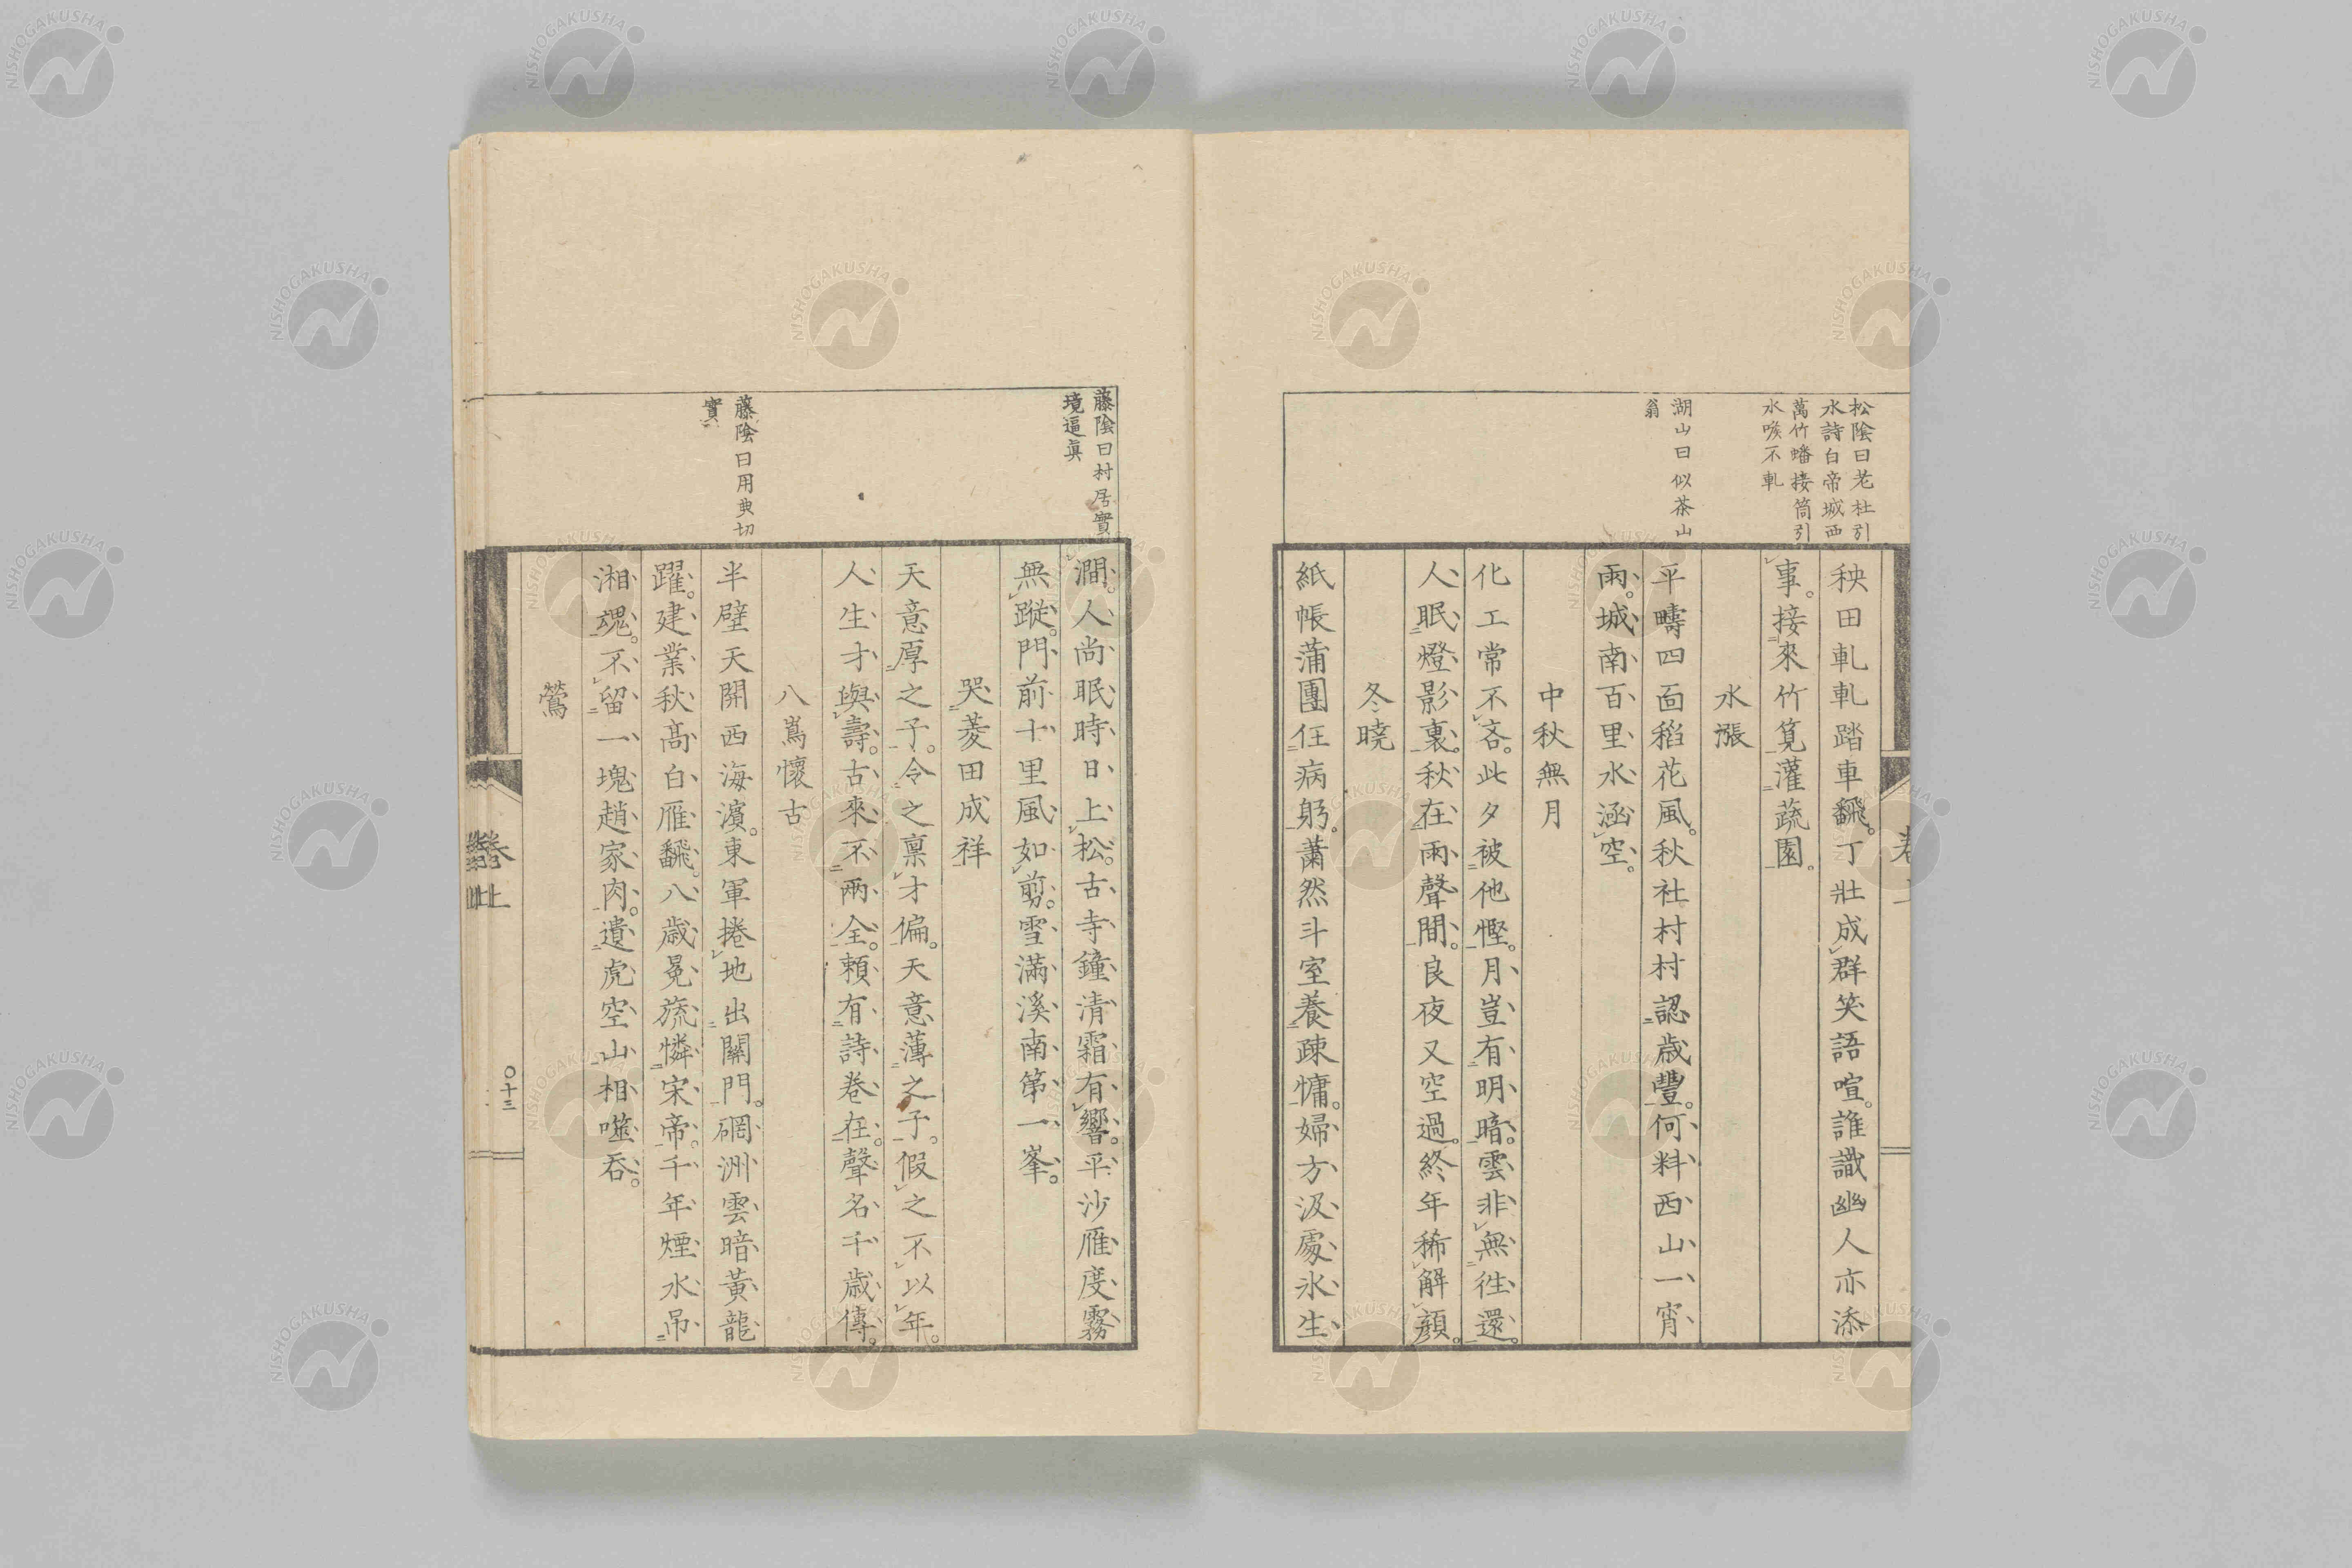 松陰曰老杜引
水詩白帝城西
萬竹蟠接筒引
水喉不乾
湖山曰似茶山
翁
秧田軋軋踏車飜。丁壯成群笑語喧。誰識幽人亦添
事。接來竹筧灌蔬園。
水漲
平疇四面稻花風。秋社村村認歳豐。何料西山一宵
雨。城南百里水涵空。
中秋無月
化工常不吝。此夕被他慳。月豈有明暗。雲非無往還。
人眠燈影裏。秋在雨聲間。良夜又空過。終年稀解顔。
冬曉
紙帳蒲團任病躬。蕭然斗室養疎慵。婦方汲處氷生
藤陰曰村居實
境逼眞
藤陰曰用典切
實
澗。人尚眠時日上松。古寺鐘清霜有響。平沙雁度霧
無蹤。門前十里風如剪。雪滿溪南第一峯。
哭菱田成祥
天意厚之子。令之稟才偏。天意薄之子。假之不以年。
人生才與壽。古來不兩全。頼有詩卷在。聲名千歳傳。
八嶌懷古
半壁天開西海濱。東軍捲地出關門。硐洲雲暗黃龍
躍。建業秋高白雁飜。八歳冕旒憐宋帝。千年煙水吊
湘魂。不留一塊趙家肉。遺虎空山相噬吞。
鶯
卷上
〇十三
NISHOGAKUSHA